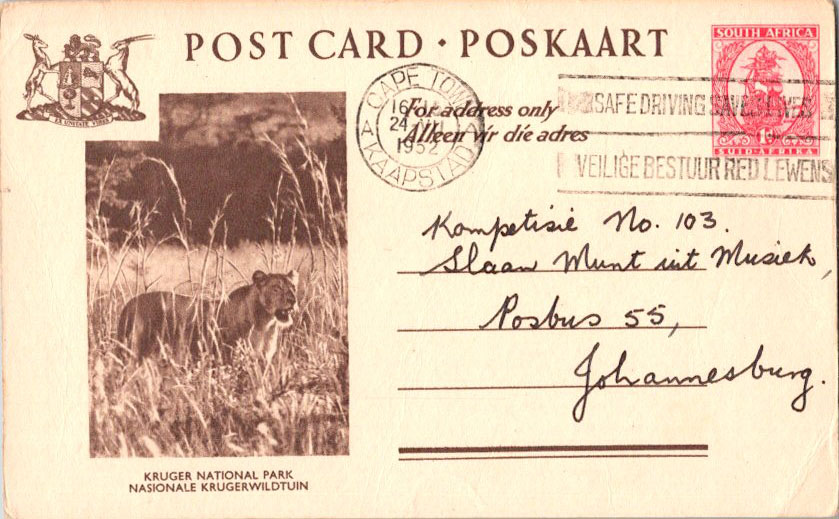 POST CARD · POSKAART
EX UNITATE VIRES
SOUTH AFRICA
1D
SUID-AFRIKA
CAPE TOWN
24
1952
A A
KAAPSTAD
SAFE DRIVING SAVES LIVES
VEILIGE BESTUUR RED LEWENS
For address only
Alleen vir die adres
Kompetisie No. 103.
Slaan Munt uit Musiek,
Posbus 55,
Johannesburg.
KRUGER NATIONAL PARK
NASIONALE KRUGERWILDTUIN